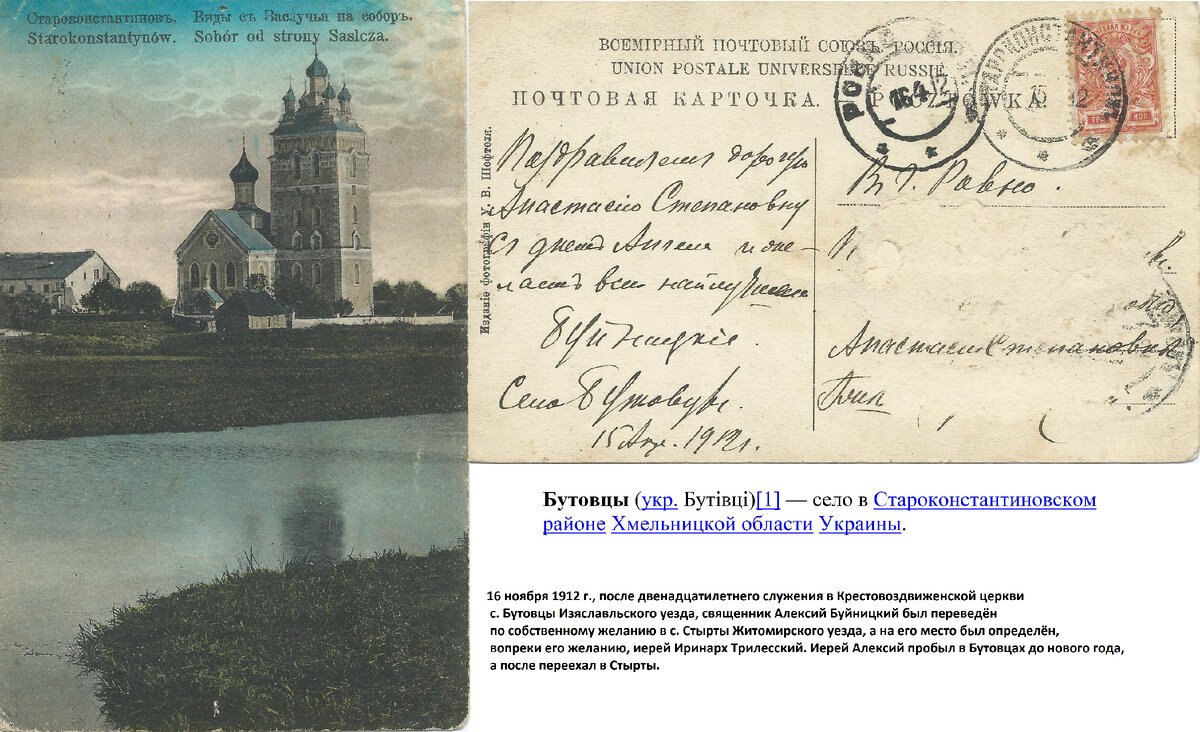 Староконстантиновъ. Виды съ Заслучья на соборъ.
Starokonstantynów. Sobór od strony Sasłcza.
ВСЕМІРНЫЙ ПОЧТОВЫЙ СОЮЗЪ. РОССІЯ.
UNION POSTALE UNIVERSELLE RUSSIE.
ПОЧТОВАЯ КАРТОЧКА. POCZTÓWKA.
Изданіе фотографіи Х. В. Шефтеля.
РОВНО
16 4 12
СТАРОКОНСТАНТИНОВЪ
15 12
Поздравляемъ дорогую
Анастасію Степановну
съ днемъ Ангела и же-
лаемъ всего наилучшаго
Буйницкіе.
Село Бутовцы.
15 Апр. 1912 г.
Въ г. Ровно.
Анастасіи Степановнѣ
Бутовцы (укр. Бутівці)[1] — село в Староконстантиновском
районе Хмельницкой области Украины.
16 ноября 1912 г., после двенадцатилетнего служения в Крестовоздвиженской церкви
с. Бутовцы Изяславльского уезда, священник Алексий Буйницкий был переведён
по собственному желанию в с. Стырты Житомирского уезда, а на его место был определён,
вопреки его желанию, иерей Иринарх Трилесский. Иерей Алексий пробыл в Бутовцах до нового года,
а после переехал в Стырты.